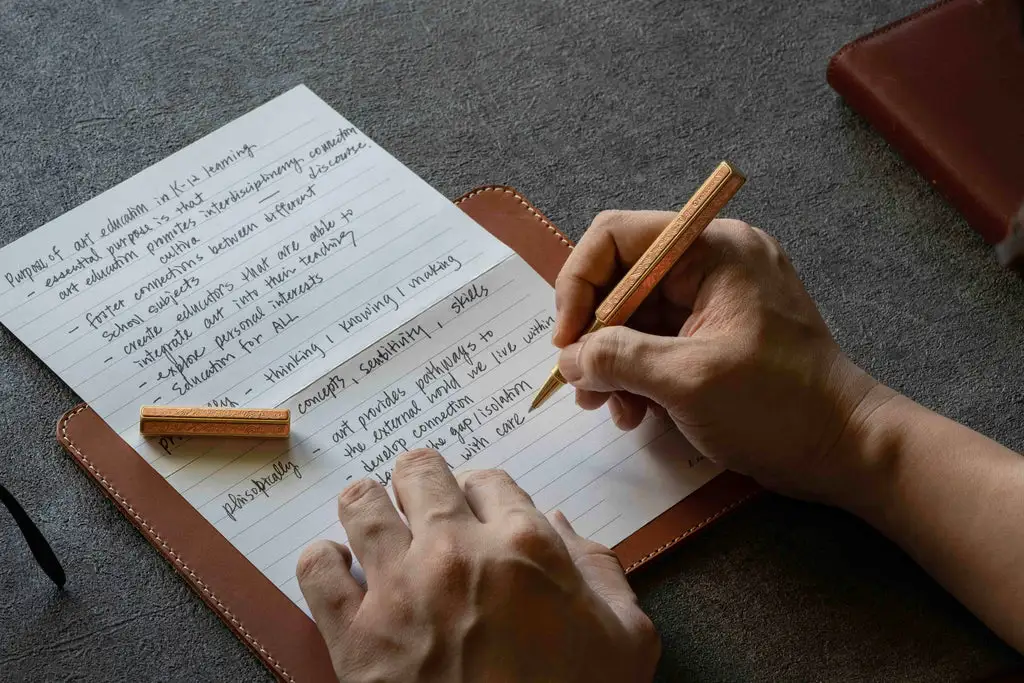 Purpose of art education in K-12 learning
- essential purpose is that
art education promotes interdisciplinary connection
cultiva — discourse.
- foster connections between different
school subjects
- create educators that are able to
integrate art into their teaching
- explore personal interests
- Education for ALL
- thinking / knowing / making
concepts, sensitivity, skills
- art provides pathways to
the external world we live within
- develop connection
the gap/isolation
with care